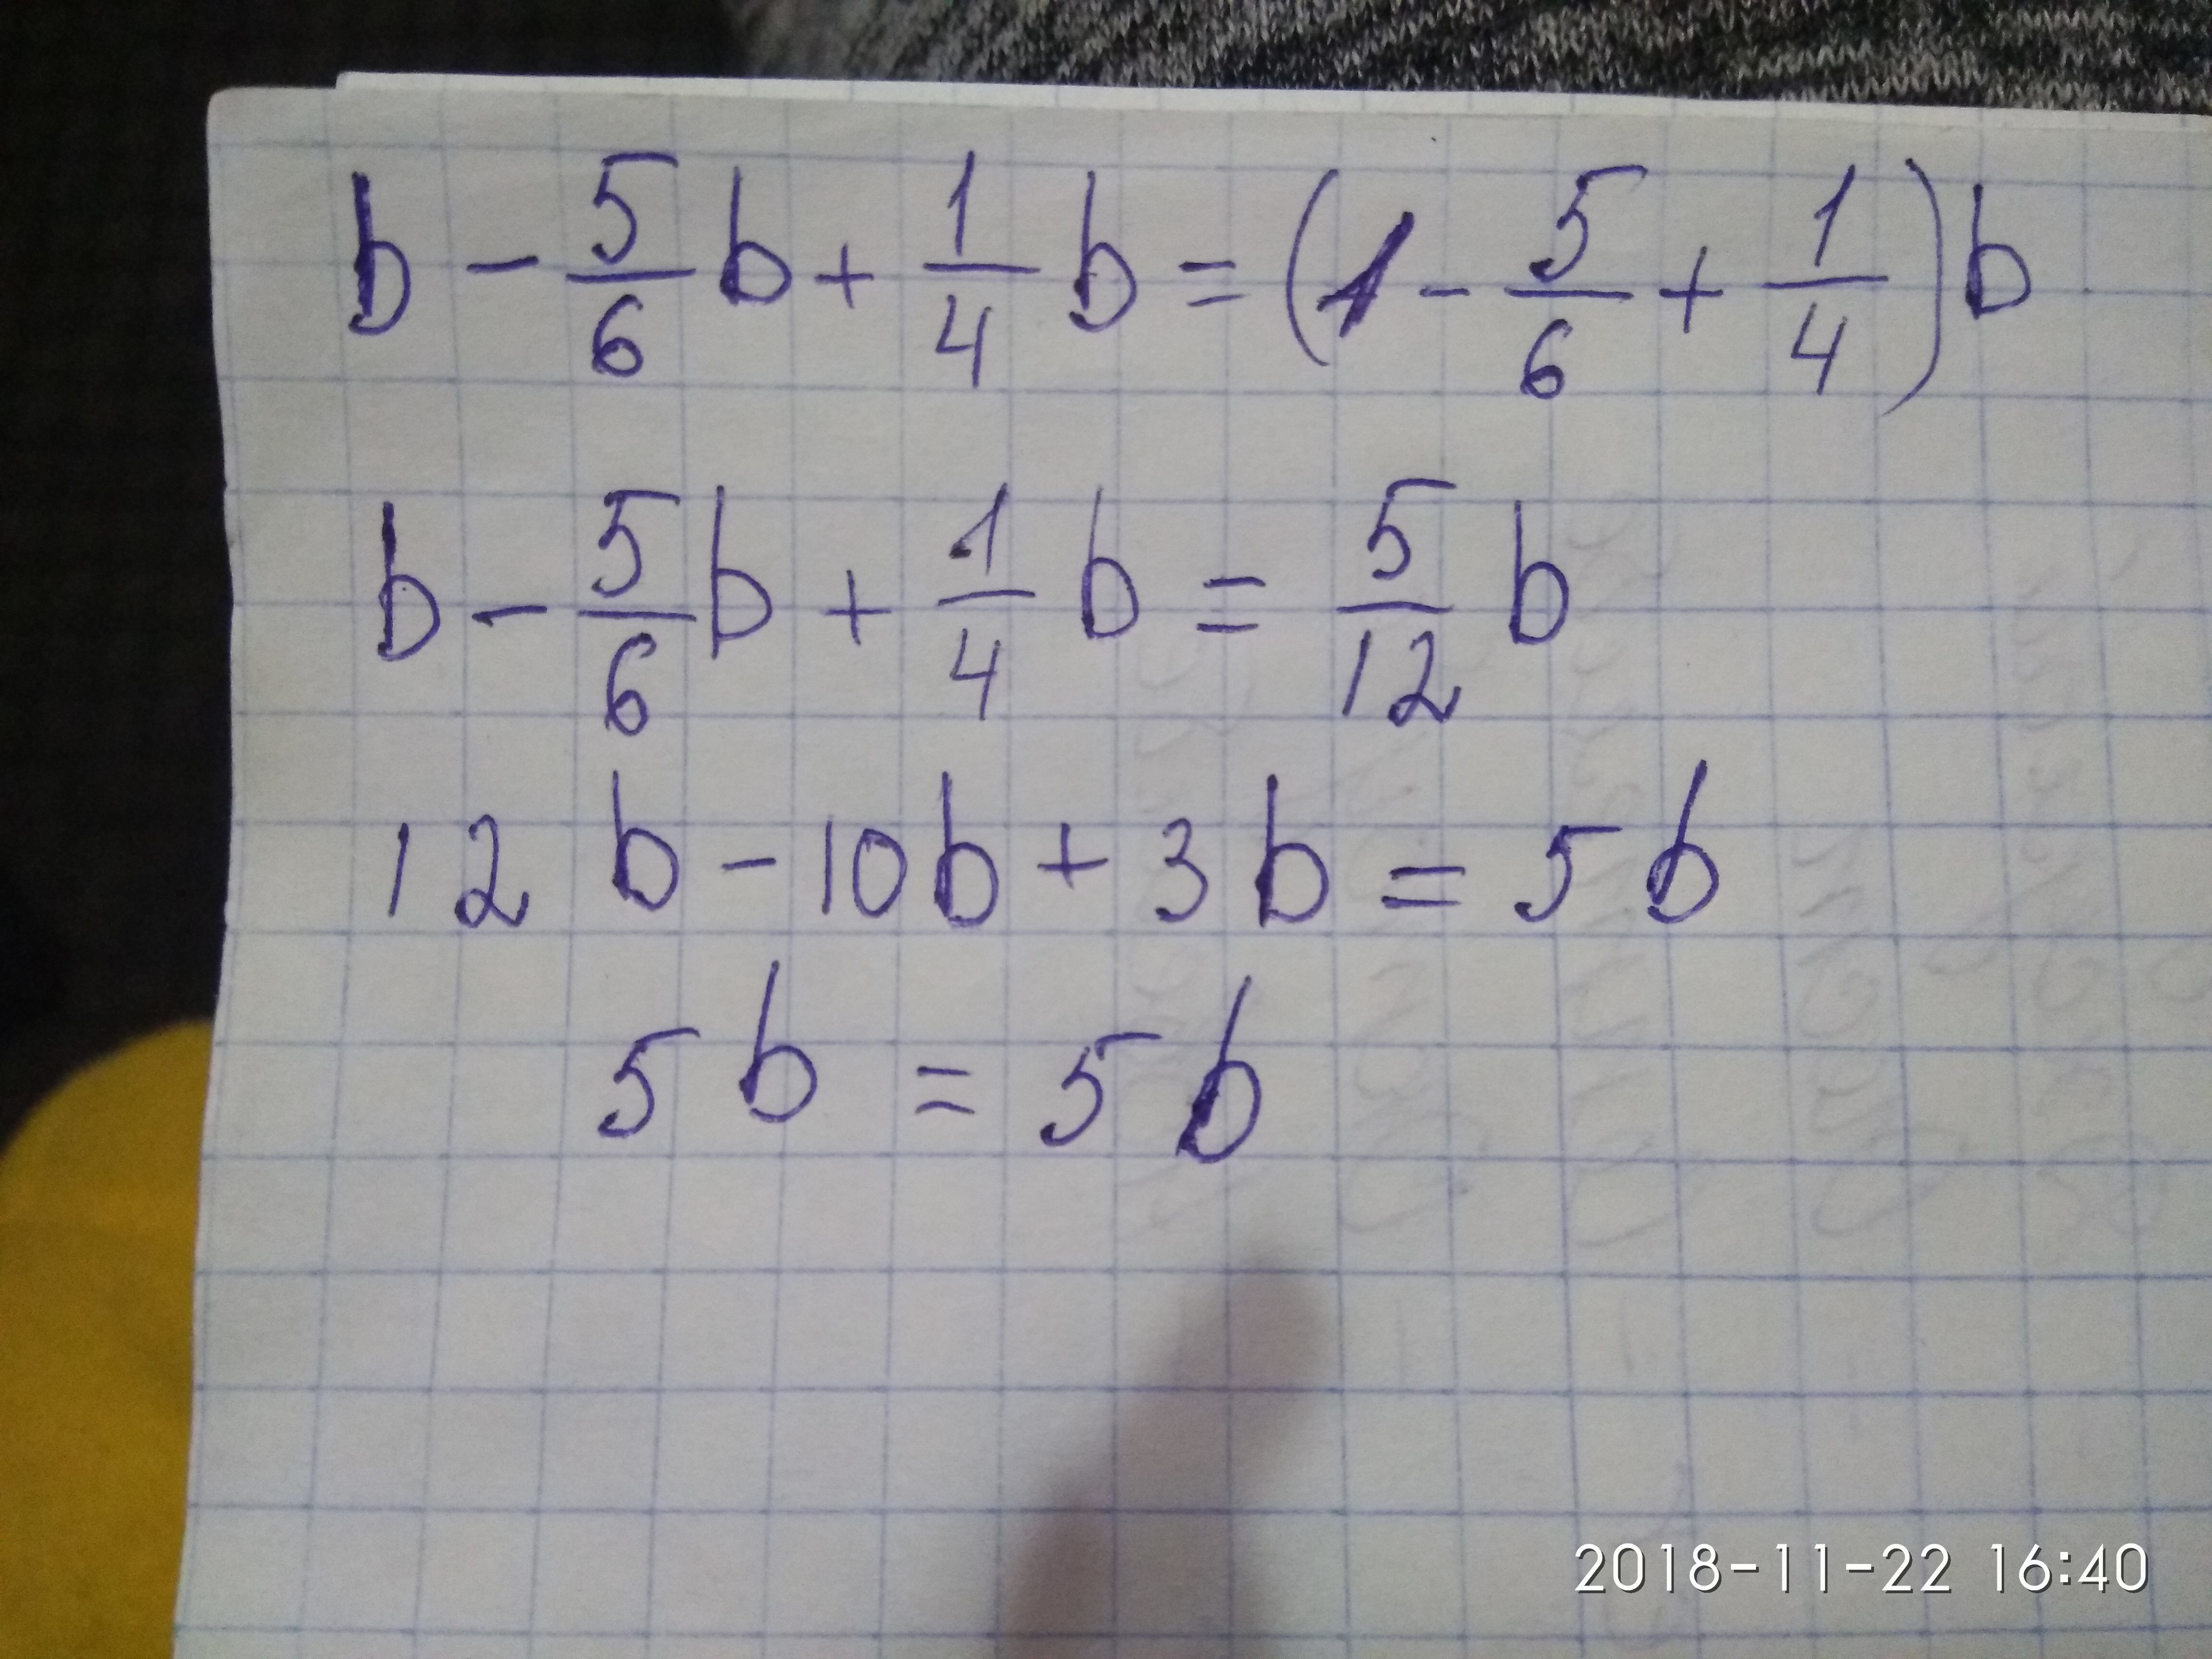 b - 5/6 b + 1/4 b = (1 - 5/6 + 1/4) b
b - 5/6 b + 1/4 b = 5/12 b
12 b - 10b + 3b = 5b
5b = 5b
2018-11-22 16:40